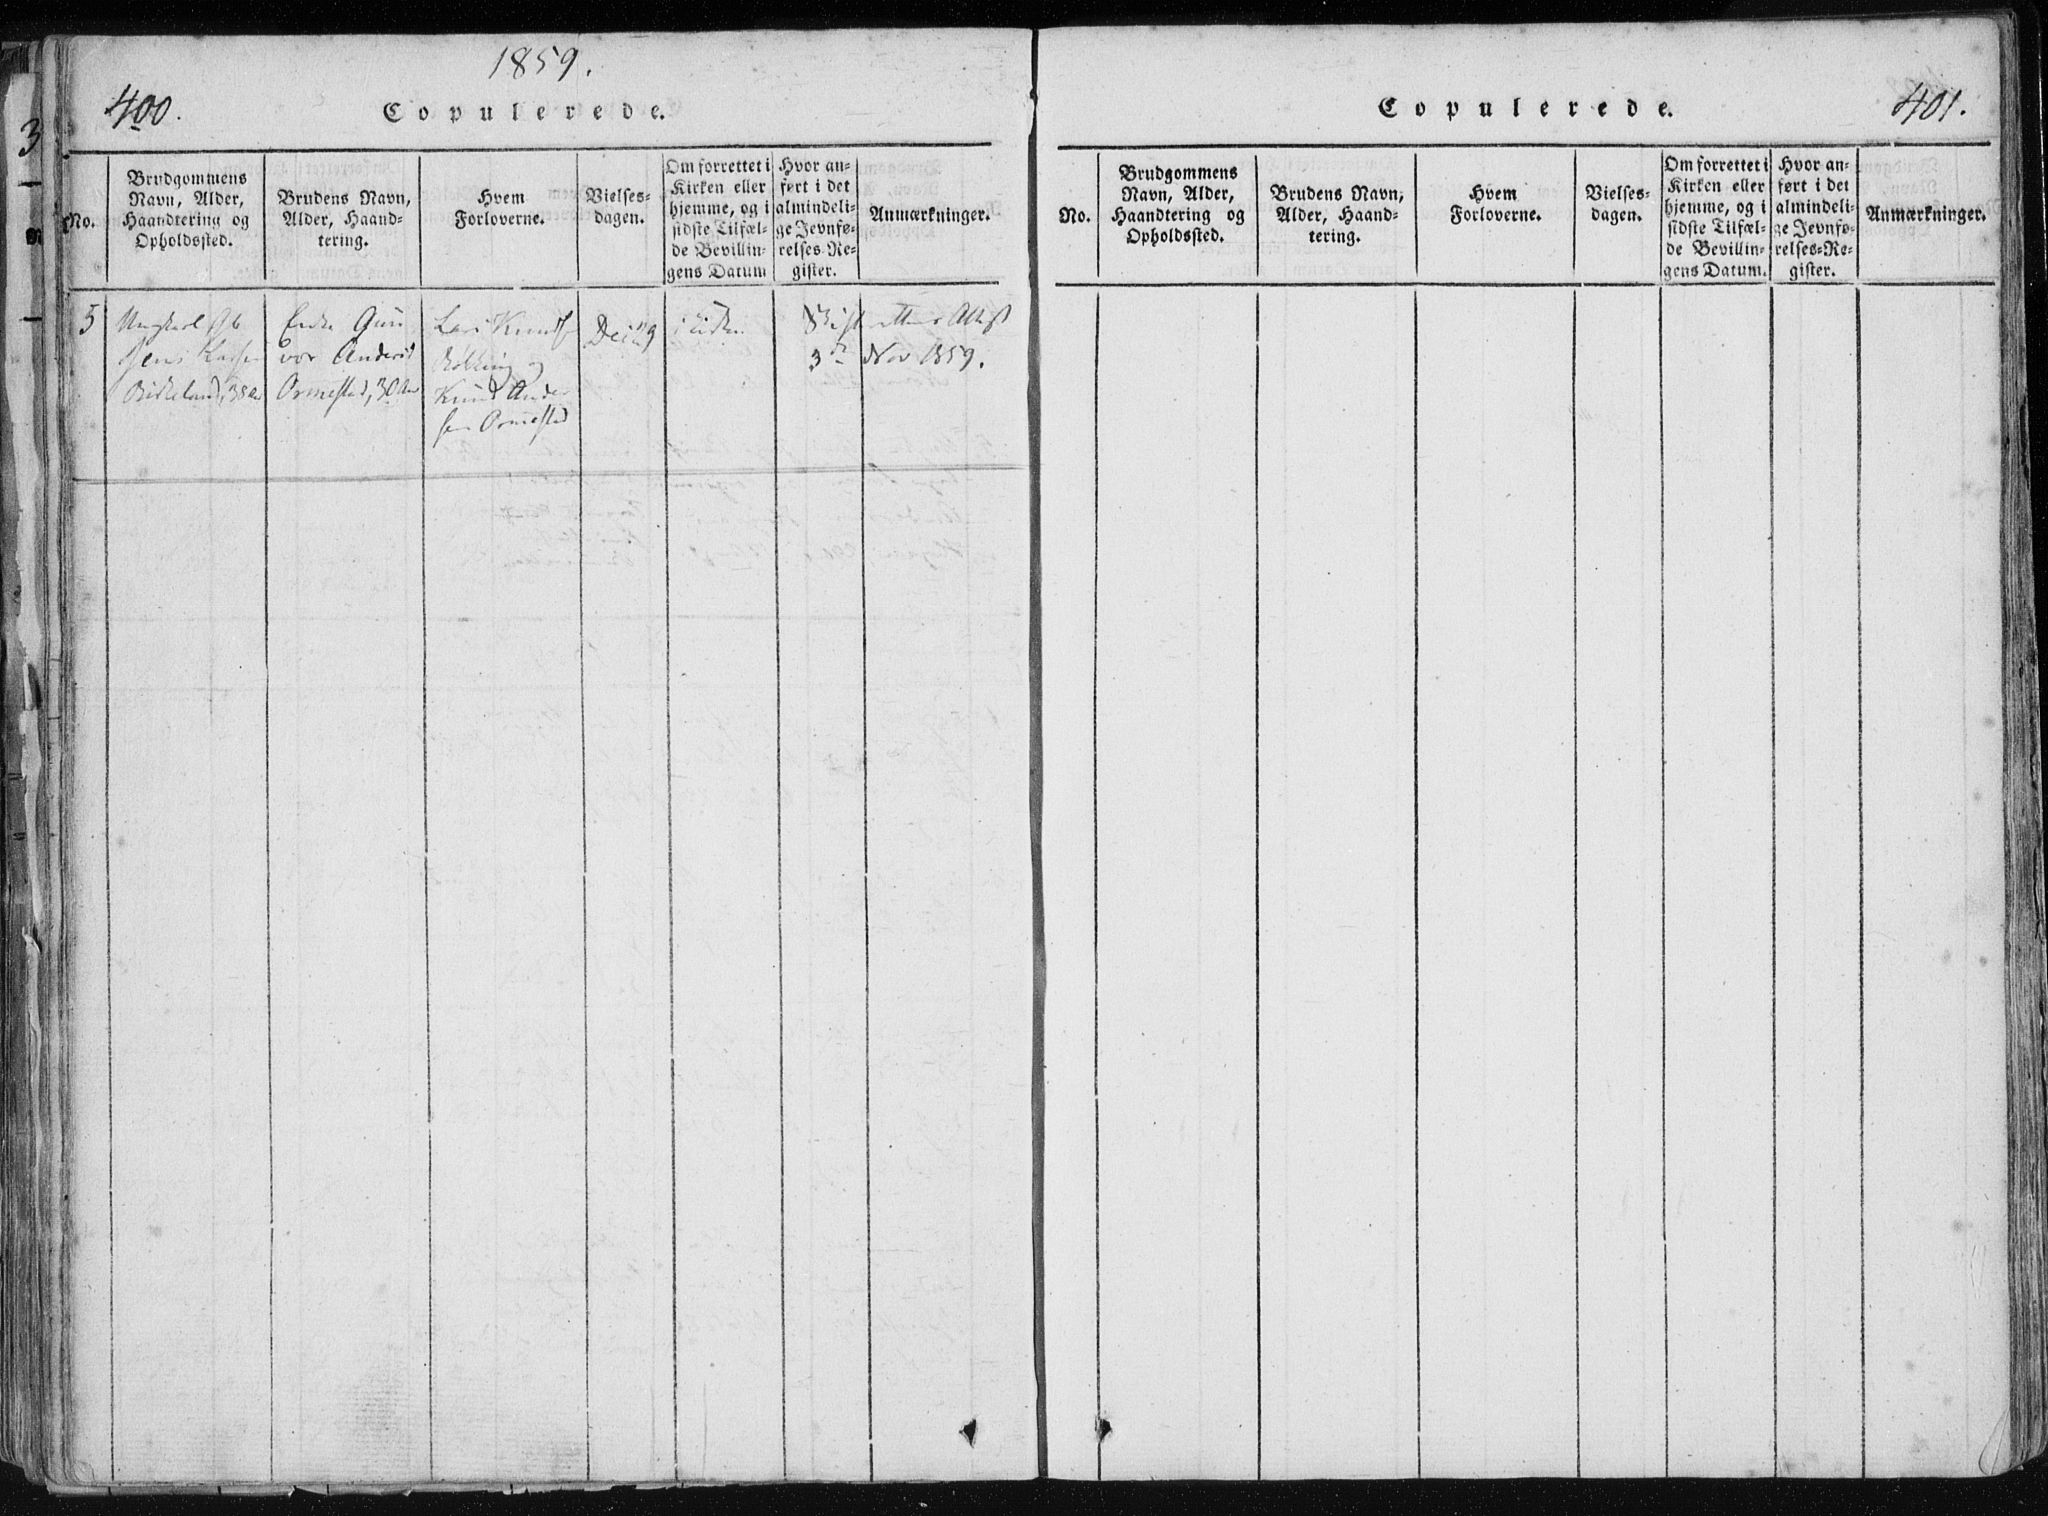 1859.
400.
Copulerede.
No.
Brudgommens
Navn, Alder,
Haandtering og
Opholdssted.
Brudens Navn,
Alder, Haand-
tering.
Hvem
Forloverne.
Vielses-
dagen.
Om forrettet i
Kirken eller
hjemme, og i
sidste Tilfæl-
de Bevillin-
gens Datum
Hvor an-
ført i det
almindeli-
ge Jevnfø-
relses-Re-
gister.
Anmærkninger.
5
Ungkarl
Jens
Birkeland, 38
Enke Gun
vor Anders
Ormestad, 30
Lars Knuds
og
Knud Ander
sen Ormestad
9
i
Skift Attest
3 Nov 1859.
Copulerede.
401.
No.
Brudgommens
Navn, Alder,
Haandtering og
Opholdssted.
Brudens Navn,
Alder, Haand-
tering.
Hvem
Forloverne.
Vielses-
dagen.
Om forrettet i
Kirken eller
hjemme, og i
sidste Tilfæl-
de Bevillin-
gens Datum.
Hvor an-
ført i det
almindeli-
ge Jevnfø-
relses-Re-
gister.
Anmærkninger.